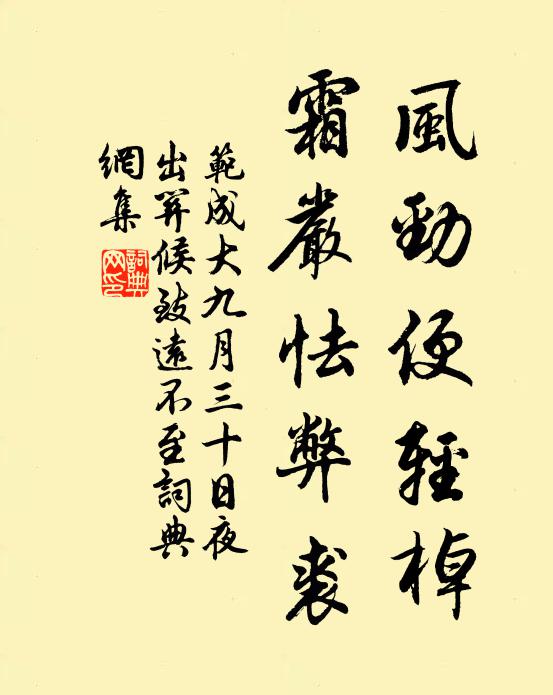 風勁便輕棹
霜嚴怯弊裘
範成大九月三十日夜
出關候致遠不至詞典
網集
詞典網印